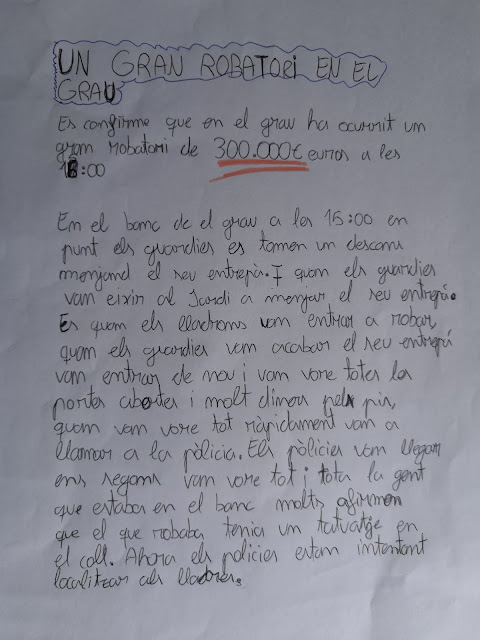 UN GRAN ROBATORI EN EL
GRAU
Es confirme que en el grau ha ocurrit un
gran robatori de 300.000€ euros a les
16:00
En el banc de el grau a les 16:00 en
punt els guardies es tomen un descans
menjand el seu entrepà. I quan els guardies
van eixir al Jardi a menjar el seu entrepà.
Es quan els lladrons van entrar a robar,
quan els guardies van acabar el seu entrepà
van entrar de nou i van vore totes les
portes abertes i molt diners pel pis,
quan van vore tot ràpidament van a
llamar a la pòlicia. Els pòlicies van llegar
ens segons van vore tot i tota la gent
que estaba en el banc molts afirmen
que el que robaba tenia un tatuatge en
el coll. Ahora els policies estan intentant
localitzar als lladres.